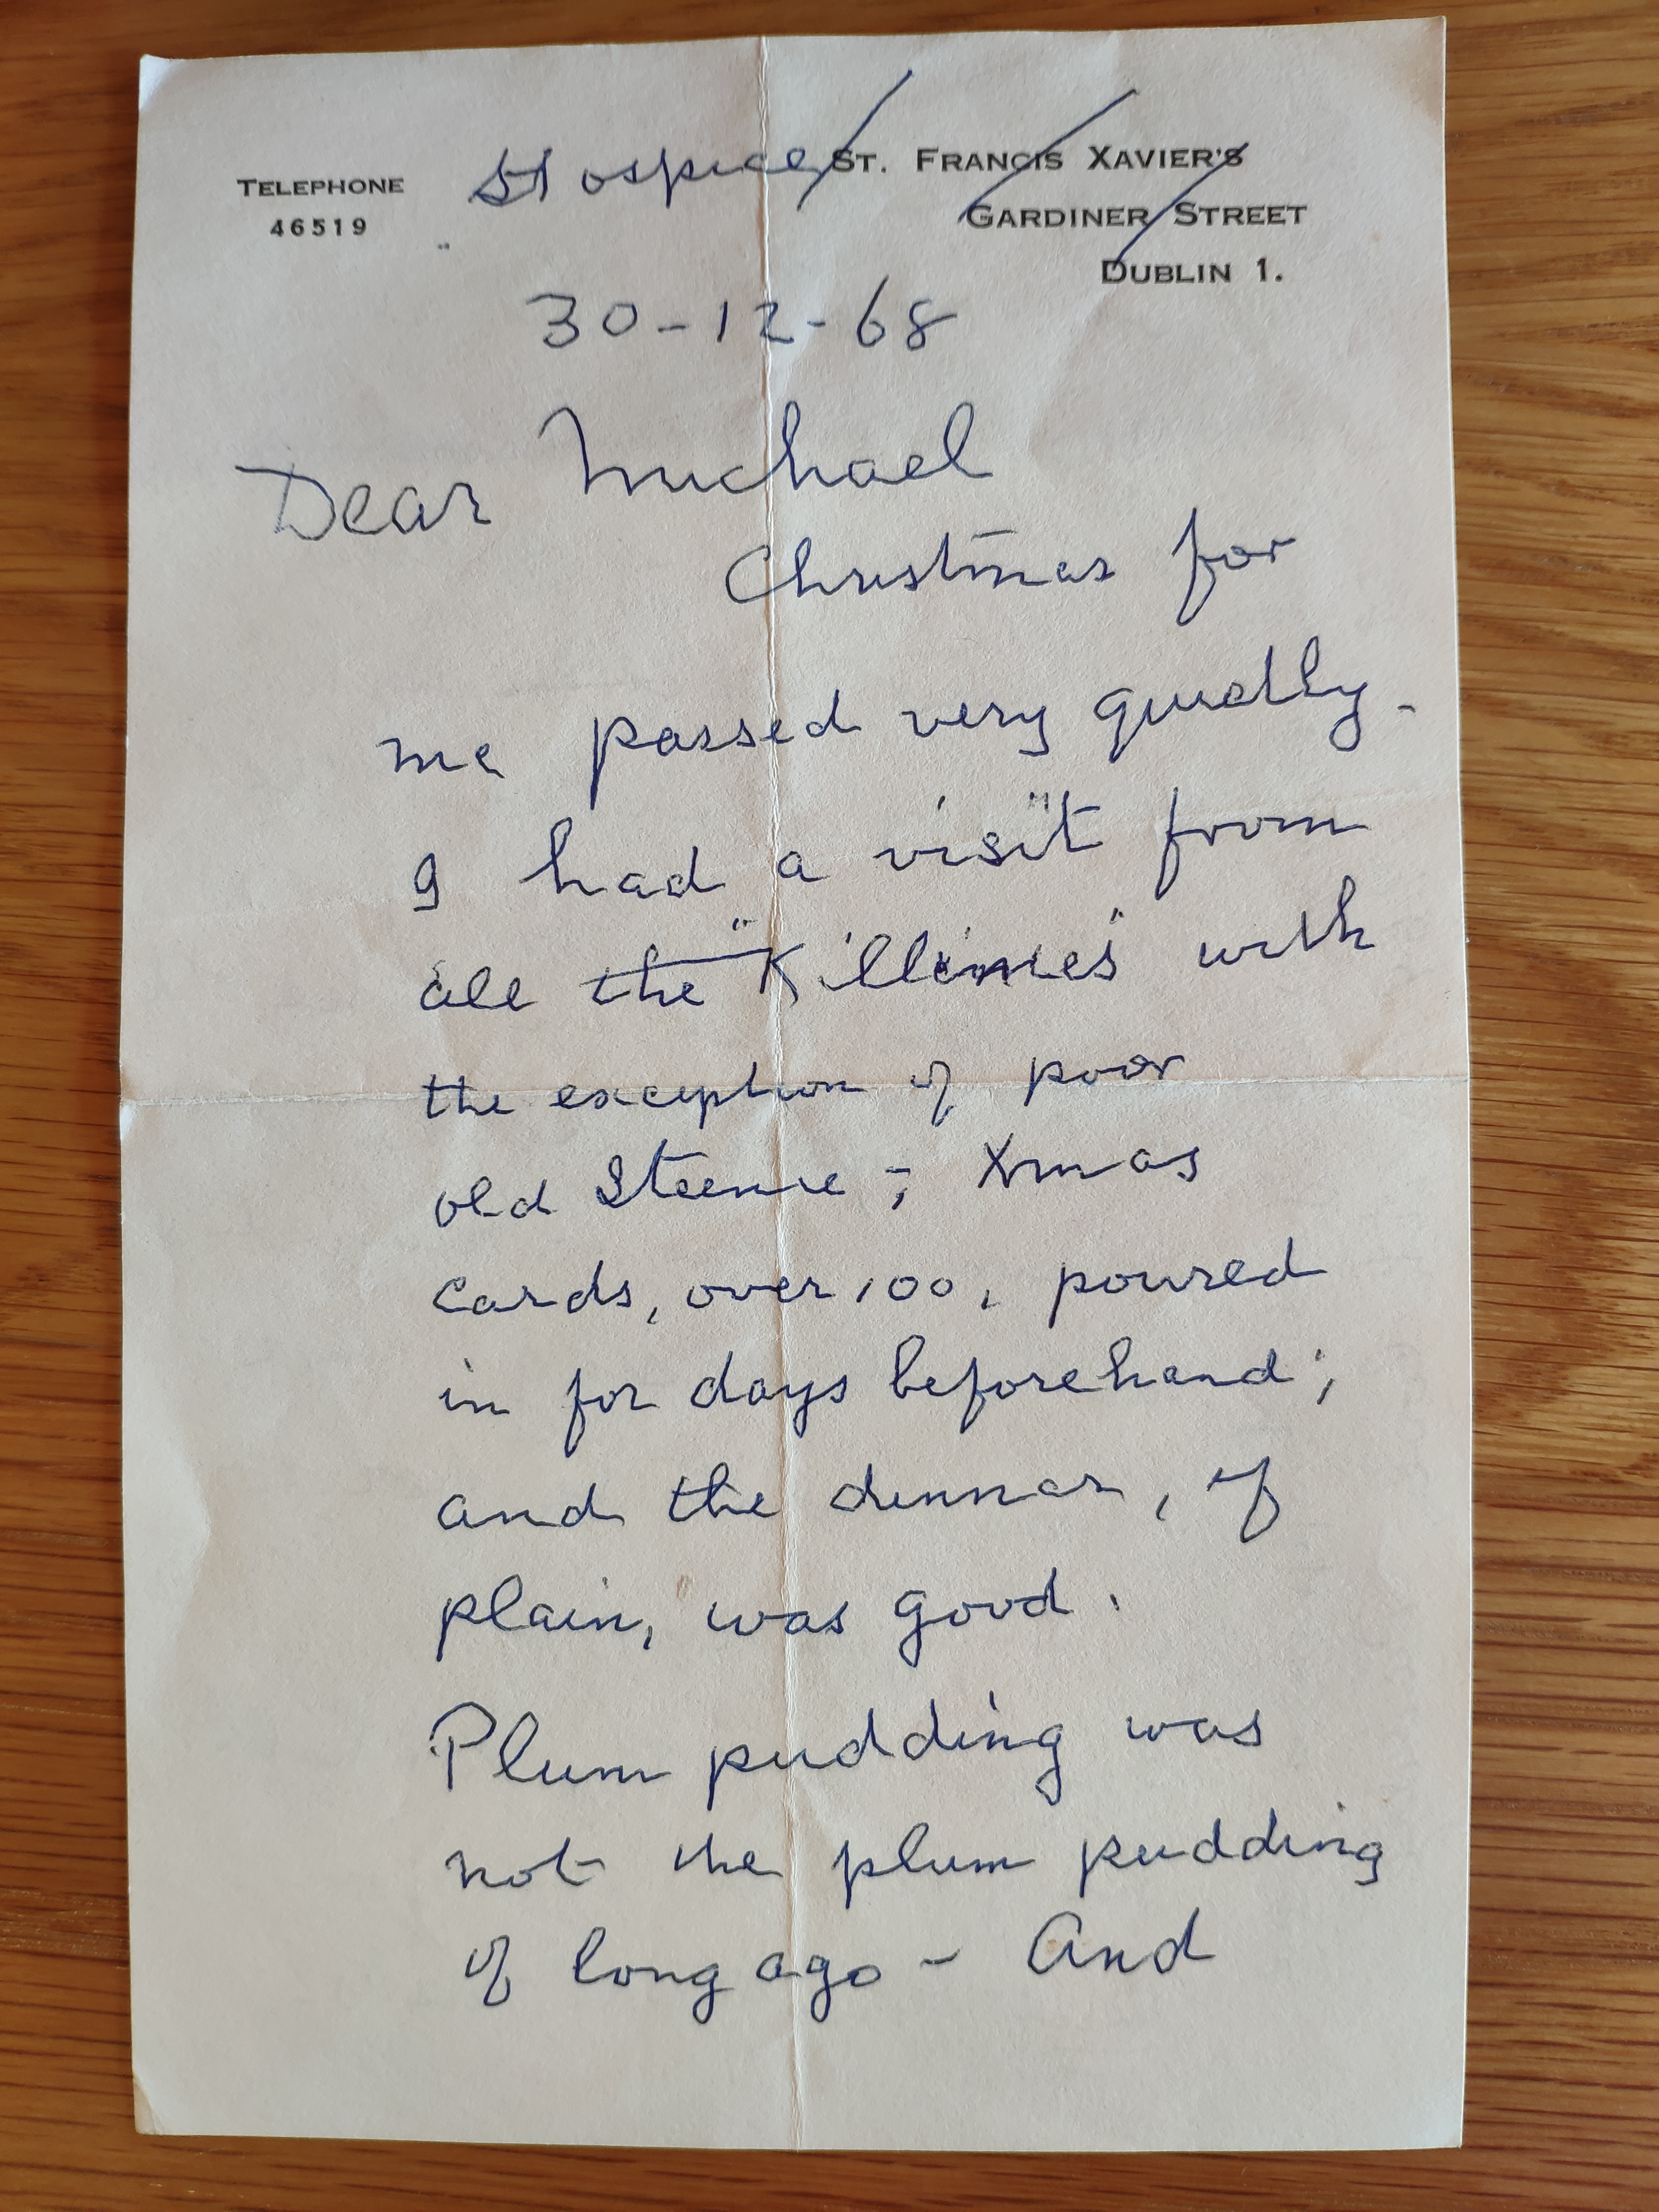 TELEPHONE
46519
Hospice
ST. FRANCIS XAVIER'S
GARDINER STREET
DUBLIN 1.
30-12-68
Dear Michael
Christmas for
me passed very quietly.
I had a visit from
all the "Killinies" with
the exception of poor
old Steenie; Xmas
cards, over 100, poured
in for days beforehand;
and the dinner, if
plain, was good.
Plum pudding was
not the plum pudding
of long ago - And